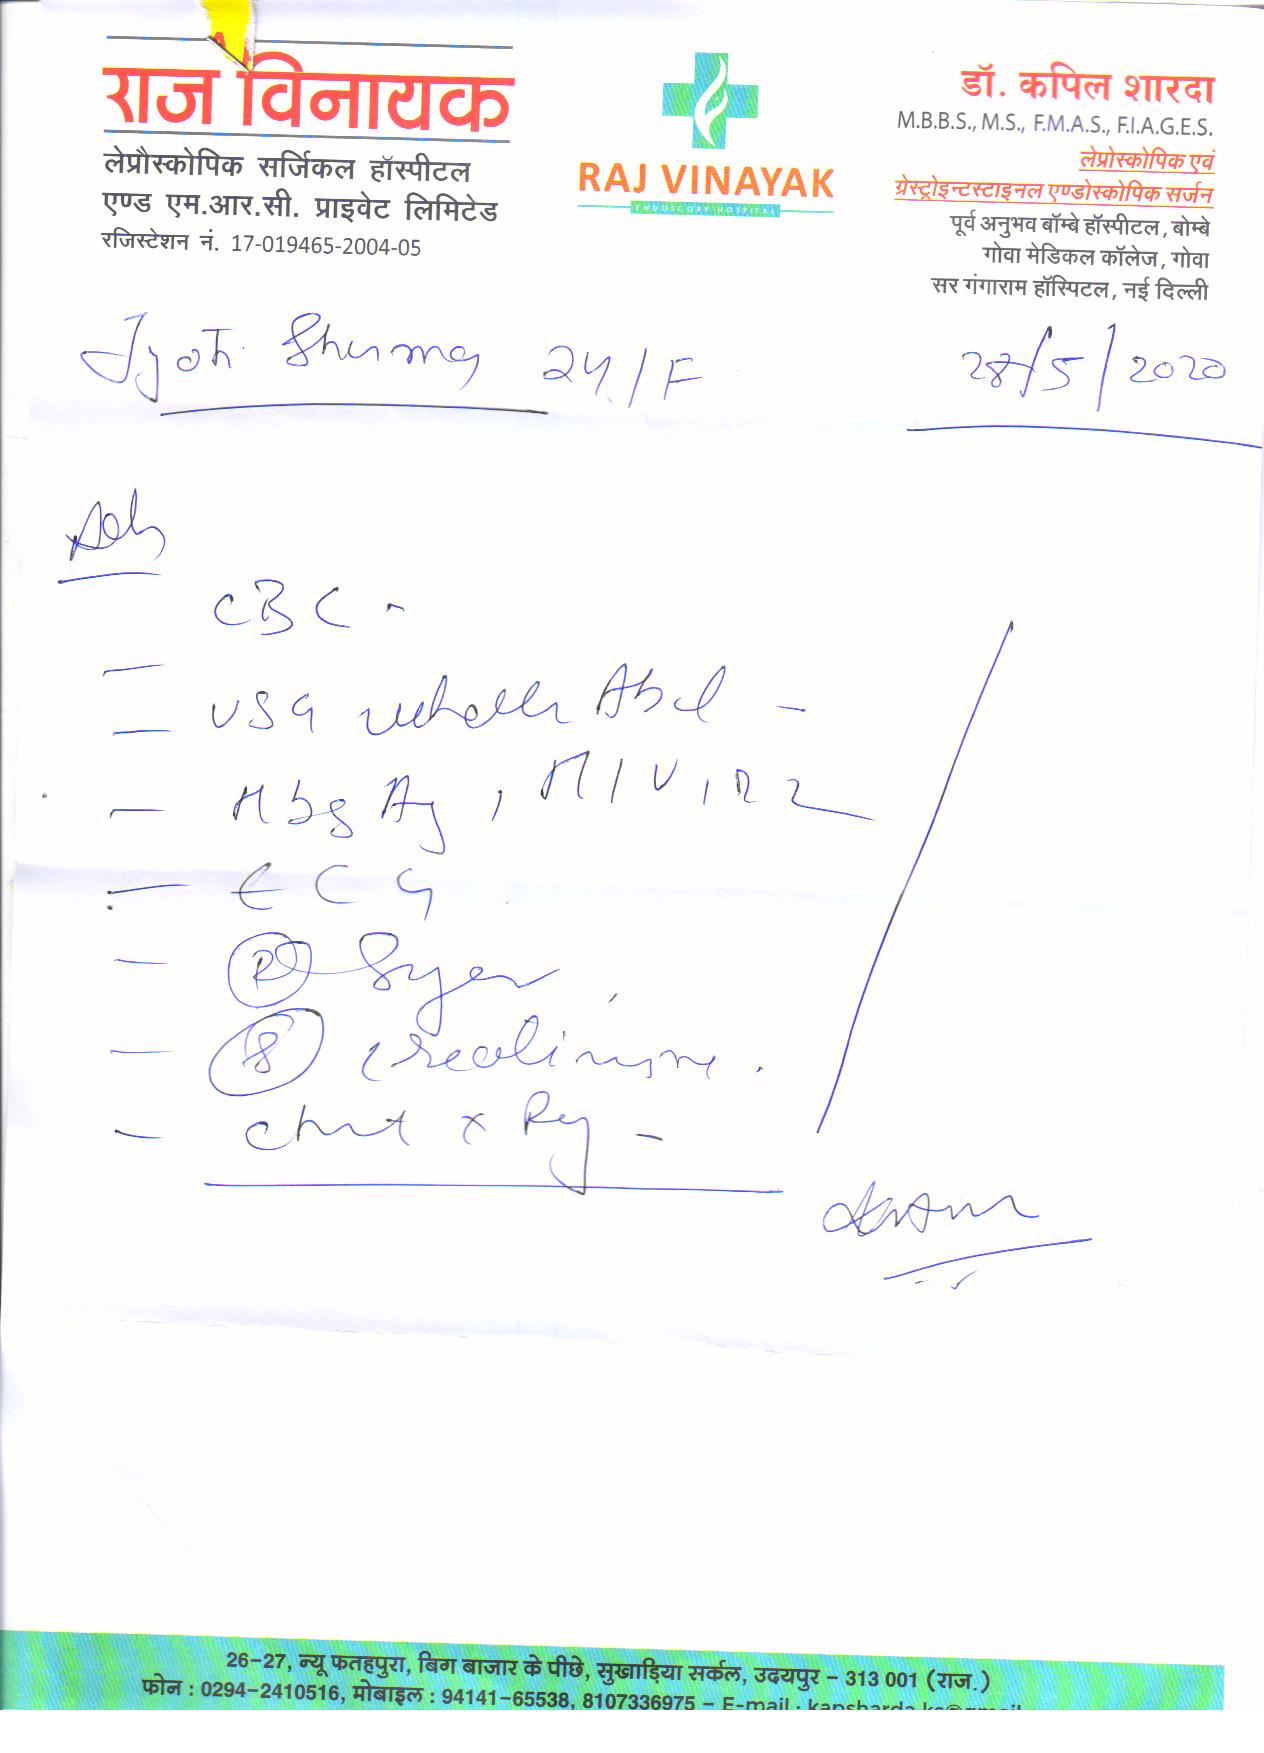 राज विनायक
लेप्रौस्कोपिक सर्जिकल हॉस्पीटल
एण्ड एम.आर.सी. प्राइवेट लिमिटेड
रजिस्टेशन नं. 17-019465-2004-05
RAJ VINAYAK
ENDOSCOPY HOSPITAL
डॉ. कपिल शारदा
M.B.B.S., M.S., F.M.A.S., F.I.A.G.E.S.
लेप्रोस्कोपिक एवं
ग्रेस्ट्रोइन्टस्टाइनल एण्डोस्कोपिक सर्जन
पूर्व अनुभव बॉम्बे हॉस्पीटल, बोम्बे
गोवा मेडिकल कॉलेज, गोवा
सर गंगाराम हॉस्पिटल, नई दिल्ली
Jyoti Sharma 24/F
28/5/2020
Adv
CBC -
- USG whole Abd -
- HbsAg, HIV,
- ECG
- Sugar
- S creatinine.
- chest x Ray -
26-27, न्यू फतहपुरा, बिग बाजार के पीछे, सुखाड़िया सर्कल, उदयपुर - 313 001 (राज.)
फोन : 0294-2410516, मोबाइल : 94141-65538, 8107336975 - E-mail :